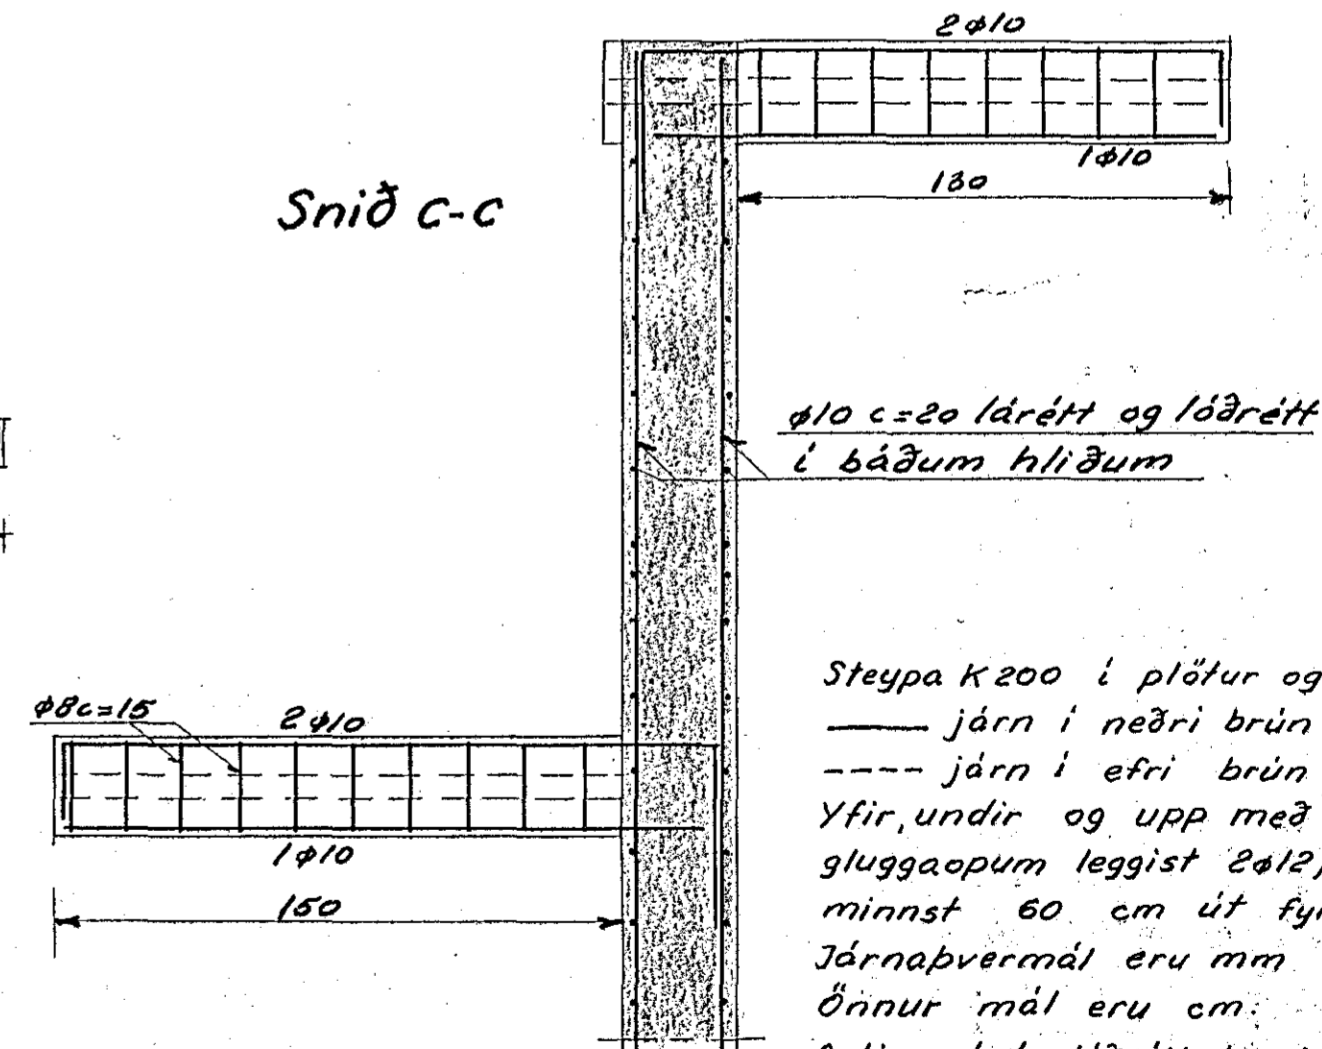 2ø10
1ø10
130
Snið c-c
ø10 c=20 lárétt og lóðrétt
í báðum hliðum
ø8c=15
2ø10
1ø10
150
Steypa K200 í plötur og
járn í neðri brún
járn í efri brún
Yfir, undir og upp með
gluggaopum leggist 2ø12,
minnst 60 cm út
Járnaþvermál eru mm
Önnur mál eru cm.